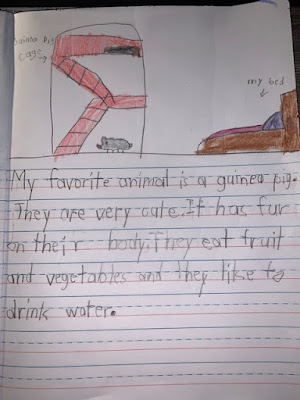 Guinea Pig
cage
my bed
My favorite animal is a guinea pig.
They are very cute. It has fur
on their body. They eat fruit
and vegetables and they like to
drink water.